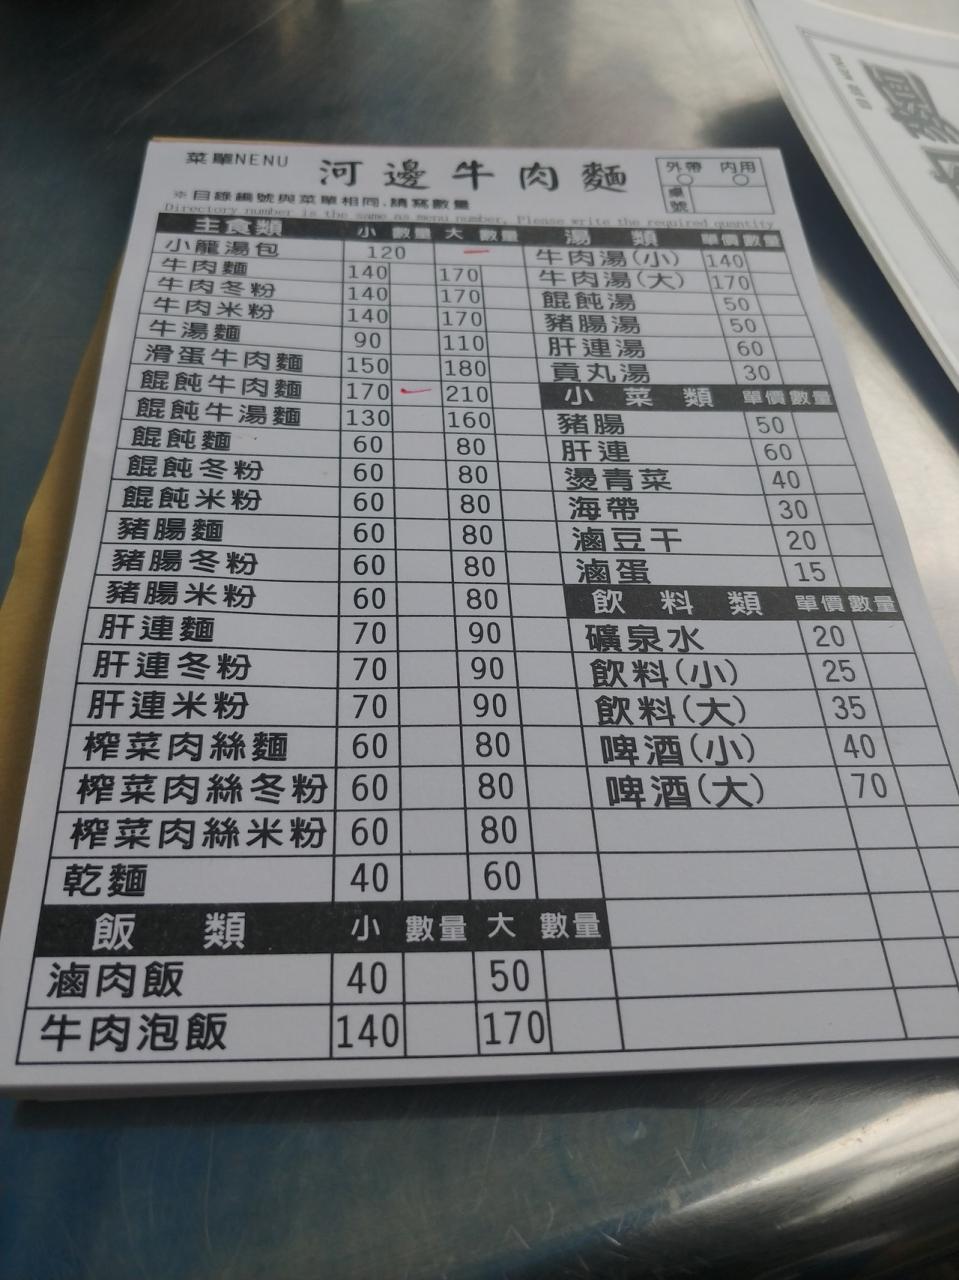 菜單NENU 河邊牛肉麵 外帶 內用
桌號
※目錄編號與菜單相同,請寫數量
Directory number is the same as menu number. Please write the required quantity
主食類 小 數量 大 數量
小籠湯包 120
牛肉麵 140 170
牛肉冬粉 140 170
牛肉米粉 140 170
牛湯麵 90 110
滑蛋牛肉麵 150 180
餛飩牛肉麵 170 210
餛飩牛湯麵 130 160
餛飩麵 60 80
餛飩冬粉 60 80
餛飩米粉 60 80
豬腸麵 60 80
豬腸冬粉 60 80
豬腸米粉 60 80
肝連麵 70 90
肝連冬粉 70 90
肝連米粉 70 90
榨菜肉絲麵 60 80
榨菜肉絲冬粉 60 80
榨菜肉絲米粉 60 80
乾麵 40 60
飯類 小 數量 大 數量
滷肉飯 40 50
牛肉泡飯 140 170
湯類 單價 數量
牛肉湯(小) 140
牛肉湯(大) 170
餛飩湯 50
豬腸湯 50
肝連湯 60
貢丸湯 30
小菜類 單價 數量
豬腸 50
肝連 60
燙青菜 40
海帶 30
滷豆干 20
滷蛋 15
飲料類 單價 數量
礦泉水 20
飲料(小) 25
飲料(大) 35
啤酒(小) 40
啤酒(大) 70